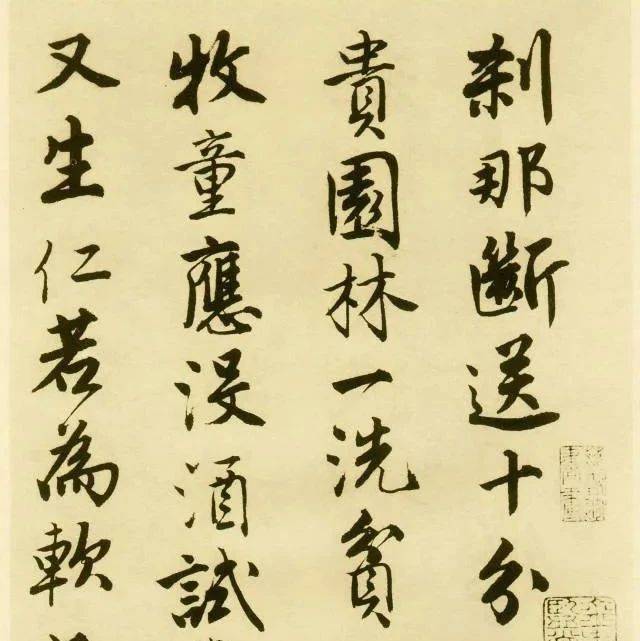 刹那斷送十分
貴園林一洗貧
牧童應没酒試
又生仁若為軟